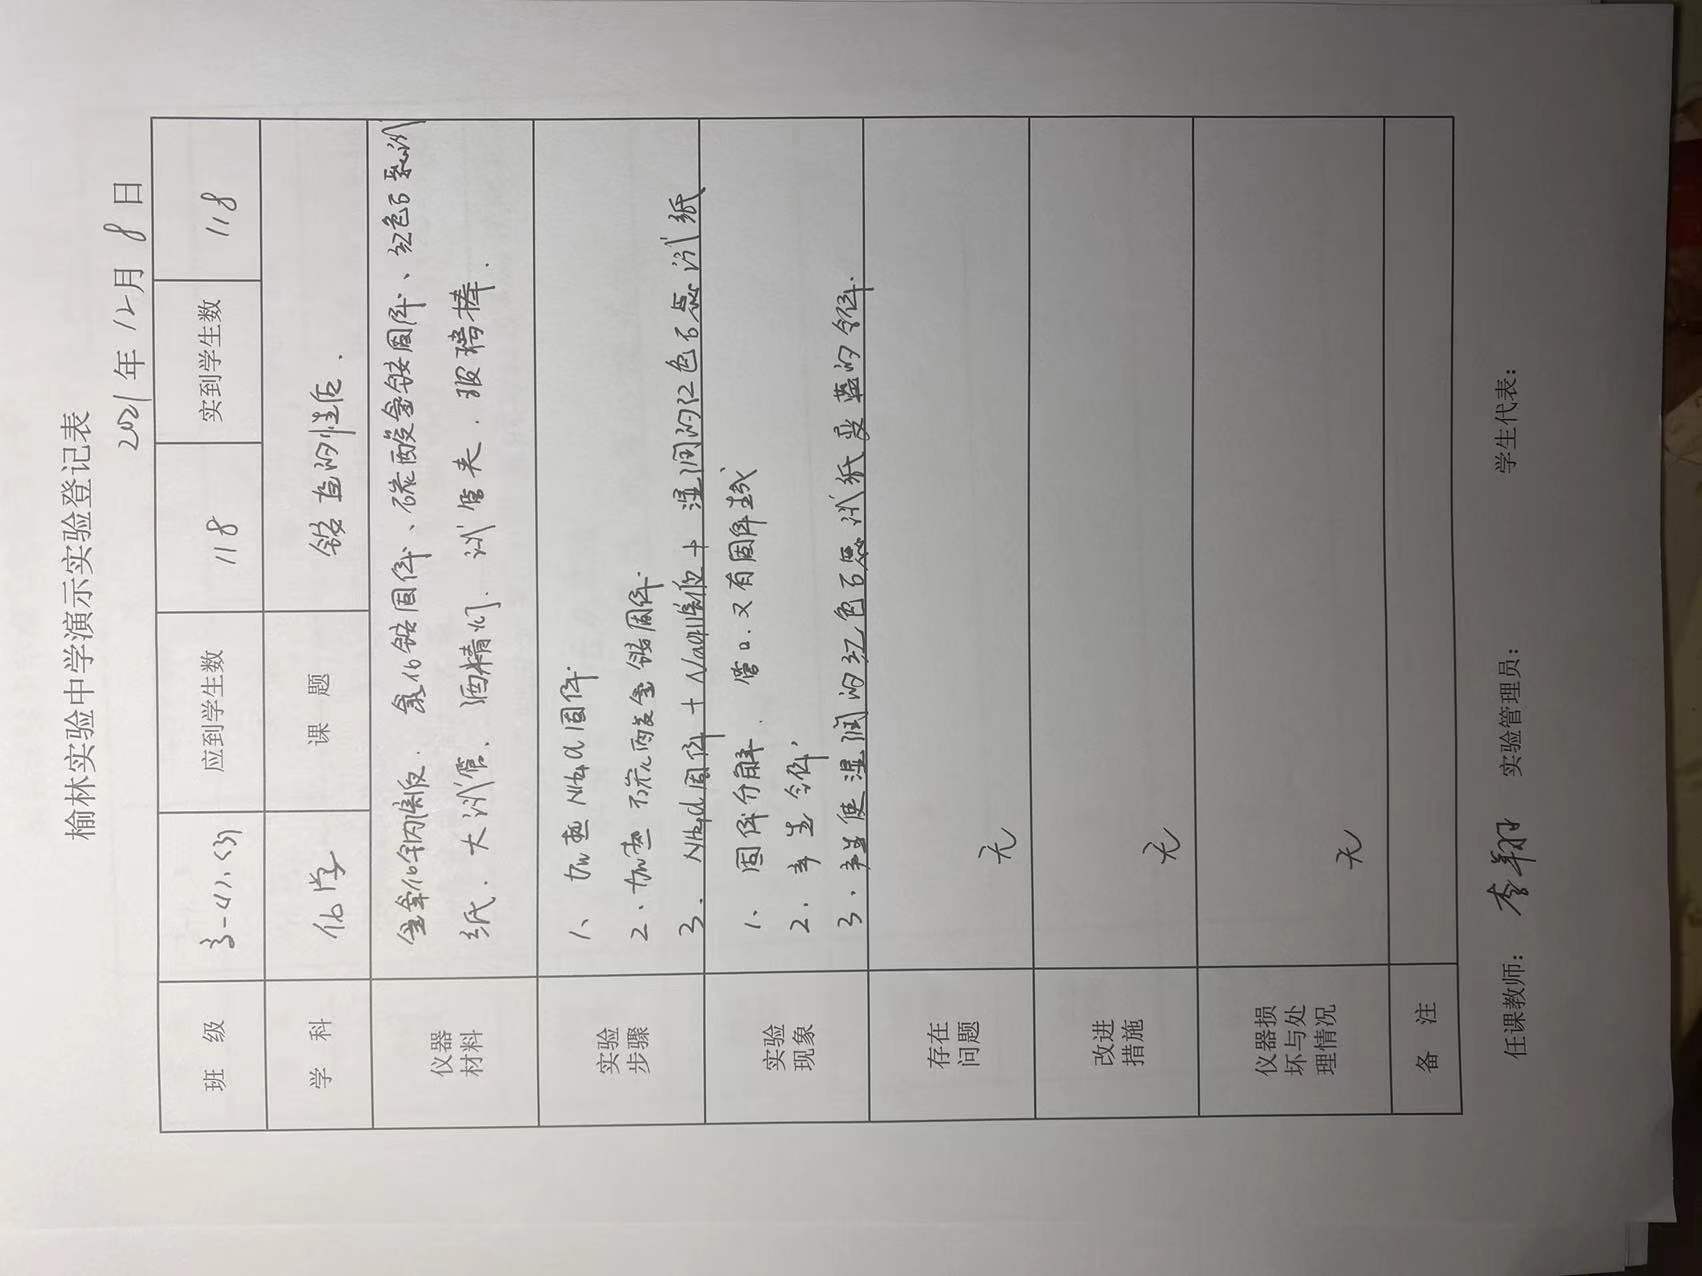 榆林实验中学演示实验登记表
2021年12月8日
班 级 应到学生数 118 实到学生数 118
学 科 化学 课 题 铵盐的性质.
仪器材料 氢氧化钠溶液. 氯化铵固体、碳酸氢铵固体、红色石蕊试
纸. 大试管. 酒精灯. 试管夹. 玻璃棒.
实验步骤 1、加热NH4Cl固体.
2、加热碳酸氢铵固体.
3. NH4Cl固体 + NaOH溶液 + 湿润的红色石蕊试纸
实验现象 1、固体分解. 管口又有固体生成
2. 产生气体,
3. 产生使湿润的红色石蕊试纸变蓝的气体.
存在问题 无
改进措施 无
仪器损坏与处理情况 无
备 注
任课教师: 李翔 实验管理员: 学生代表: